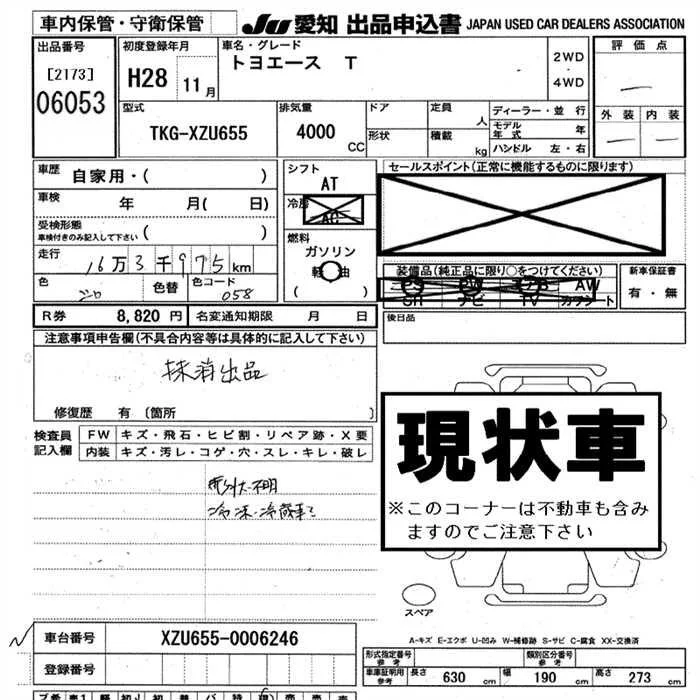 車内保管・守衛保管
JU 愛知 出品申込書 JAPAN USED CAR DEALERS ASSOCIATION
出品番号
[2173]
06053
初度登録年月
H28 11月
車名・グレード
トヨエース T
2WD
・
4WD
評価点
外装 内装
型式
TKG-XZU655
排気量
4000
CC
ドア
形状
定員
人
積載
kg
ディーラー・並行
モデル年式 年
ハンドル 左・右
車歴
自家用・( )
車検 年 月( 日)
受検形態
車検付きのみ記入して下さい ( )
走行 16万3千975km
色 シロ 色替 色コード 058
シフト
AT
冷房
AC
燃料
ガソリン
軽油
( )
セールスポイント(正常に機能するものに限ります)
装備品(純品正に限り○をつけてください)
PS PW エアB AW
SR ナビ TV カワシート
新車保証書
有・無
R券 8,820 円 名変通知期限 月 日
後日品
注意事項申告欄(不具合内容等は具体的に記入して下さい)
抹消出品
修復歴 有〔箇所 〕
検査員
記入欄
FW キズ・飛石・ヒビ割・リペア跡・X要
内装 キズ・汚レ・コゲ・穴・スレ・キレ・破レ
冷凍・冷蔵車
現状車
※このコーナーは不動車も含み
ますのでご注意下さい
スペア
車台番号 XZU655-0006246
登録番号
A-キズ E-エクボ U-凹み W-補修跡 S-サビ C-腐食 XX-交換済
形式指定番号 参考
類別区分番号 参考
車庫証明用 参考 長さ 630 cm 幅 190 cm 高さ 273 cm